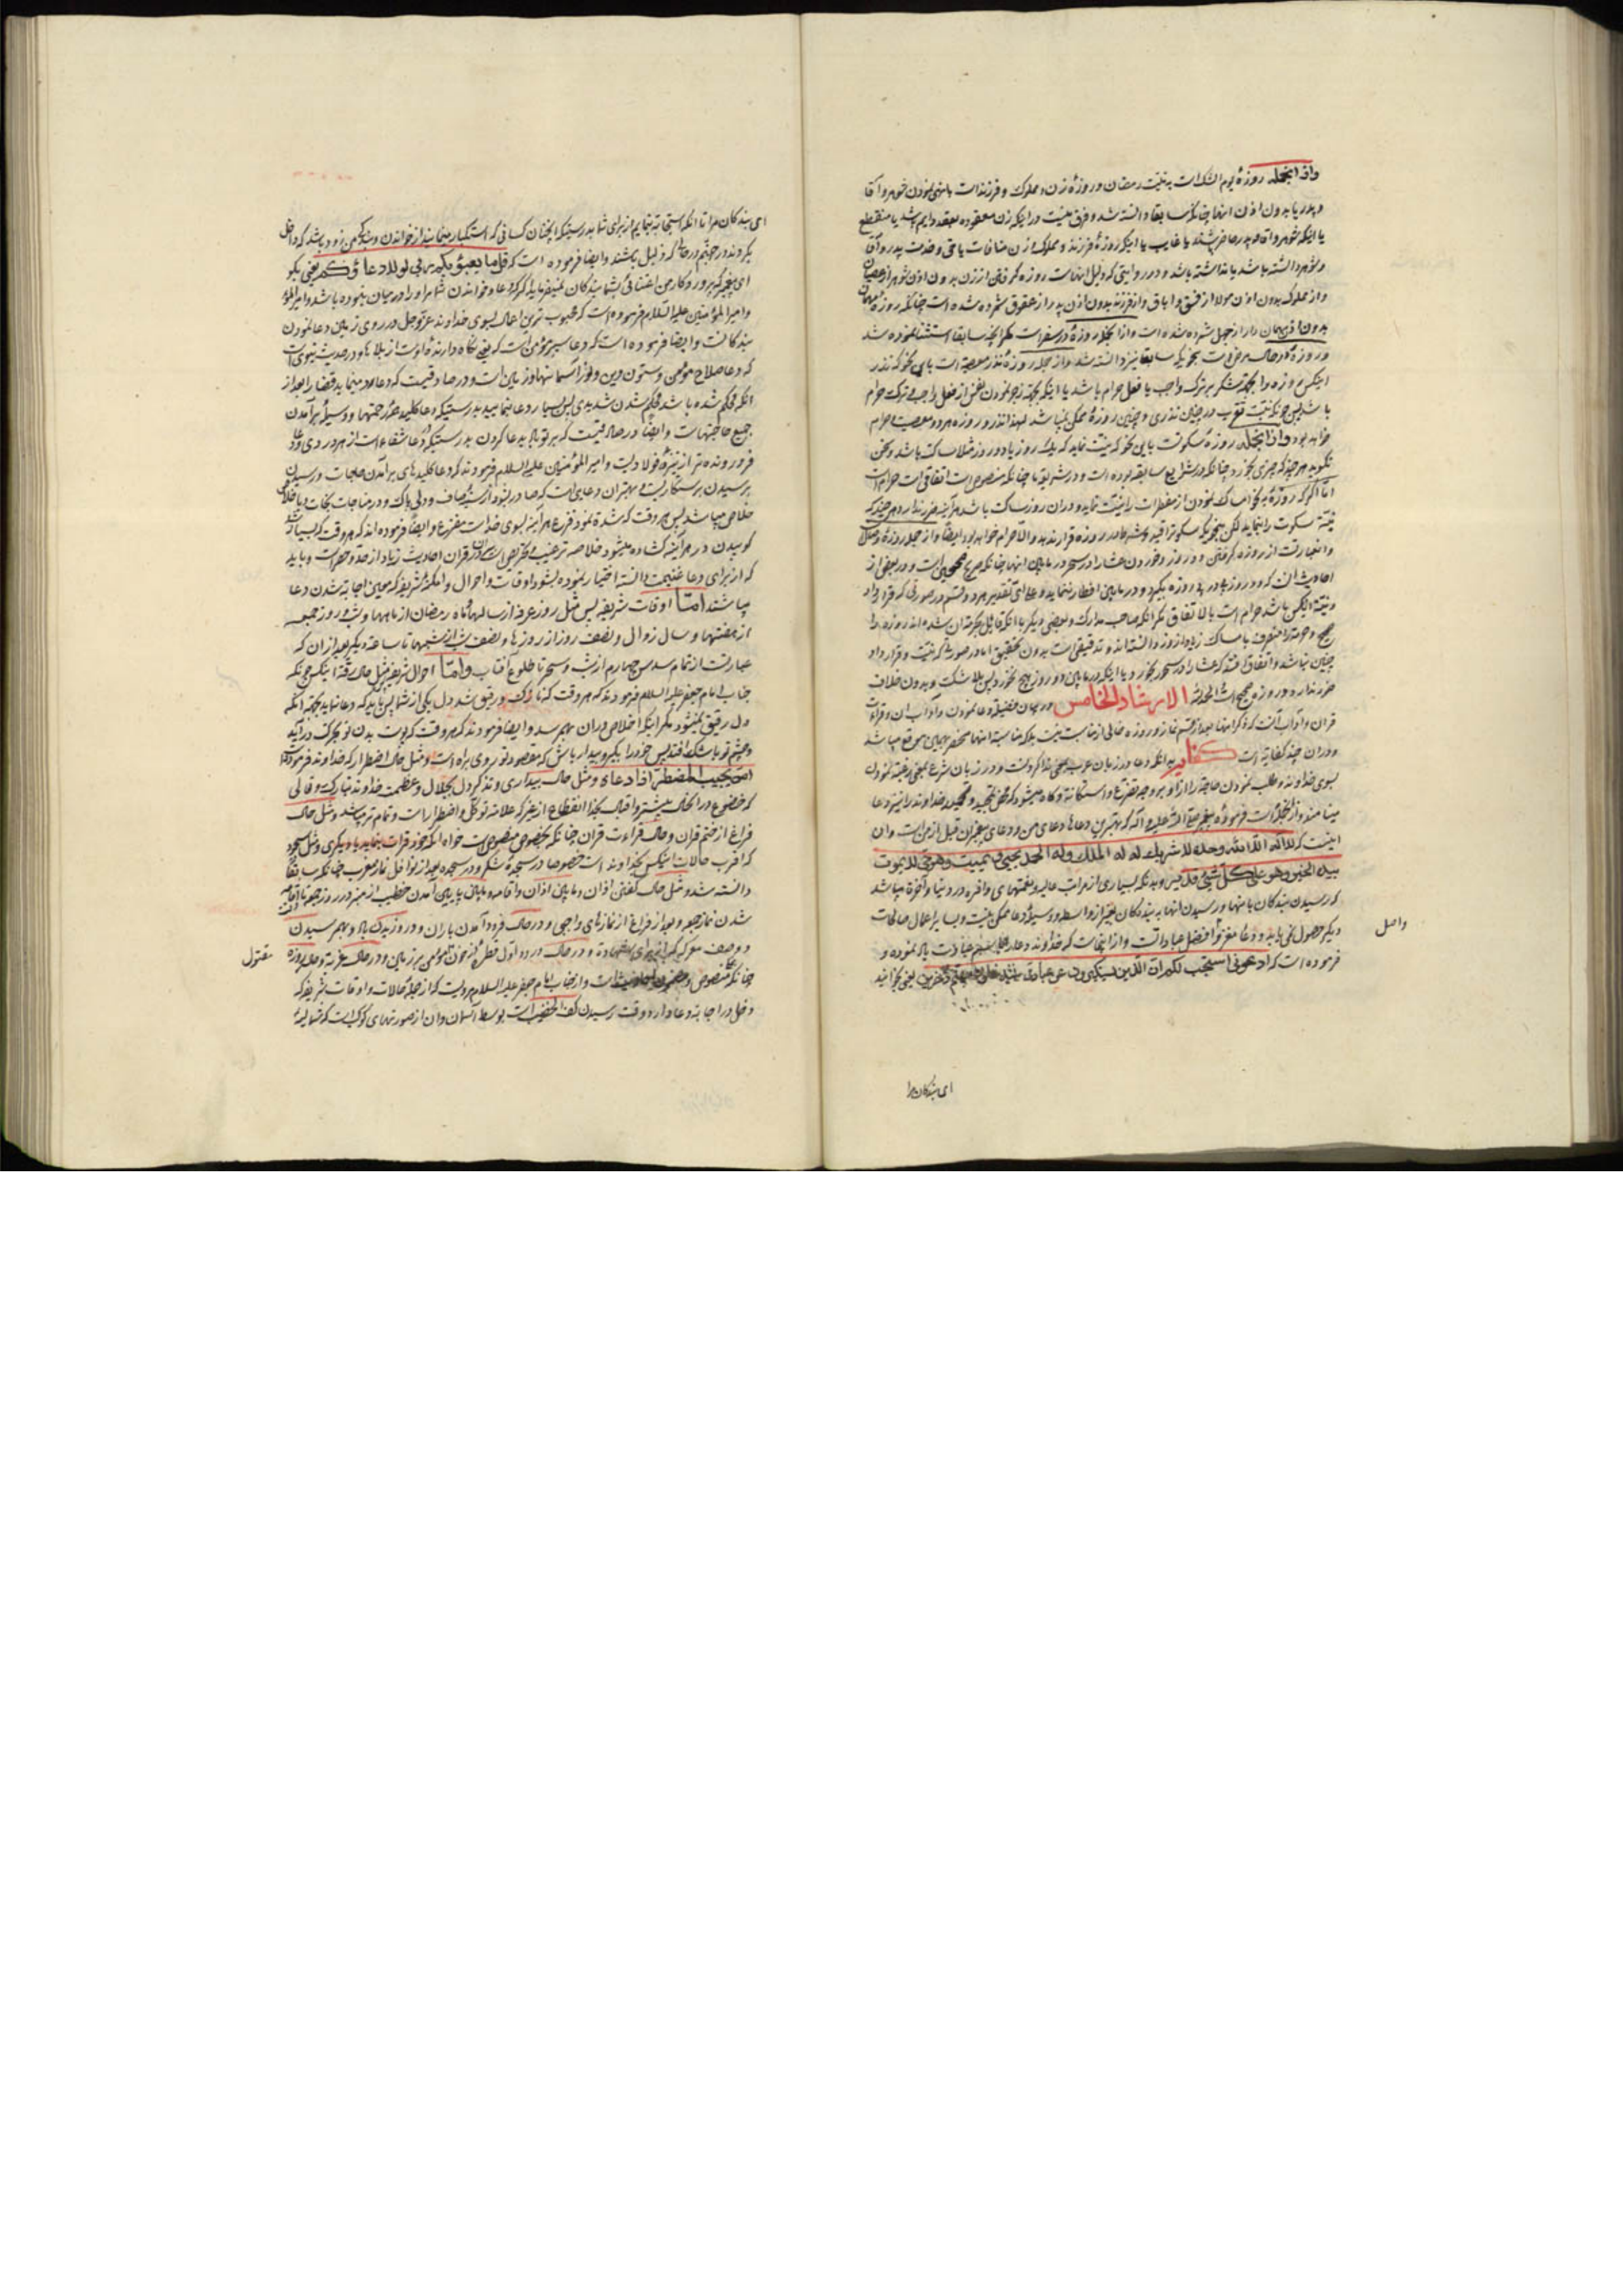 واز انجمله روزهٔ یوم الشک است به نیت رمضان و روزهٔ زن و مملوک و فرزند است با نهی نمودن شوهر و آقا
و پدر یا بدون اذن انها چنانکه سابقا دانسته شد و فرق نیست در اینکه زن معقوده بعقد دایم باشد یا منقطع
یا اینکه شوهر و اقا و پدر حاضر باشند یا غایب یا اینکه روزهٔ فرزند و مملوک و زن منافات با حق و خدمت پدر و آقا
و شوهر داشته باشد یا نداشته باشد و در روایتی که دلیل انهاست روزه گرفتن از زن بدون اذن شوهر از عصیان
و از مملوک بدون اذن مولا از فسق و اباق و از فرزند بدون اذن پدر از عقوق شمرده شده است چنانکه روزهٔ مهمان
بدون اذن مهمان دار از جهل شمرده شده است و از انجمله روزهٔ در سفر است مگر انچه سابقا استثنا نموده شد
و روزهٔ در حال مرض است بنحویکه سابقا نیز دانسته شد و از جمله روزهٔ نذر معصیة است باین نحو که نذر
اینکس روزه را بجهة شکر بر ترک واجب یا فعل حرام باشد یا اینکه بجهة زجر نمودن نفس از فعل واجب و ترک حرام
باشد پس چونکه نیت تقرب در چنین نذری و چنین روزهٔ ممکن نمیباشد لهذا نذر و روزه هر دو معصیت و حرام
خواهد بود واز انجمله روزهٔ سکوتست باین نحو که نیت نماید که یک روز یا دو روز مثلا ساکت باشد و سخن
نگوید هر چند که چیزی بخورد چنانکه در شرایع سابقه بوده است و در شریعت ما چنانکه منصوص است اتفاقی است حرام است
اما اگر که روزه به نحو امساک نمودن از مفطرات را نیت نماید و دران روز ساکت باشد هرآینه ضرر ندارد هر چند که
نیة سکوت را بنماید لکن بنحویکه سکوت را قید و شرط در روزه قرار ندهد و الا حرام خواهد بود ایضا و از جمله روزهٔ وصال
و ان عبارتست از روزه گرفتن دو روز و خوردن عشا در سحر در مابین انها چنانکه صریح صحیحین است و در بعضی از
احادیث ان که دو روز را روزه بگیرد و در مابین افطار ننماید و علی ای تقدیر هر دو قسم در صورتی که قرار داد
و نیة اینکس باشد حرام است بالاتفاق مگر انکه صاحب مدارک و بعضی دیگر با انکه قایل بحرمة ان شده اند روزه را
صحیح و حرمة را منصرف بامساک زیاد از روزه دانسته اند و تدقیقی است بدون تحقیق اما در صورت که نیت و قرار داد
چنین نباشد و اتفاق افتد که عشا را در سحر بخورد یا اینکه در مابین دو روز هیچ نخورد پس بلا شک و بدون خلاف
ضرر ندارد و روزه صحیح است الحمدلله الارشاد الخامس در بیان فضیلة دعا نمودن و آداب ان و قراءة
قران و آداب آنست که ذکر انها بعد از ختم نماز و روزه خالی از مناسبت نیست بلکه مناسبة انها منحصر بهمین موقع میباشد
و دران چند کفایة است کفایه بدانکه دعا در زبان عرب بمعنی ندا کردنست و در زبان شرع بمعنی رغبة نمودن
بسوی خداوند و طلب نمودن حاجة را از او بر وجه تضرع و استکانة و گاه میشود که محض تمجید و تحمید خداوند را نیز دعا
مینامند و از انجمله است فرمودهٔ پیغمبر صلی الله علیه و اله که بهترین دعاها دعای من و دعای پیغمبران قبل از من است وان
اینست که لا اله الا الله وحده لا شریک له له الملک وله الحمد یحیی و یمیت وهو حی لا یموت
بیده الخیر وهو علی کل شیئ قدیر و بدانکه بسیاری از مراتب عالیه و نعمتهای وافره در دنیا و آخرة میباشد
که رسیدن بندگان بانها و رسیدن انها به بندگان بغیر از واسطه و وسیلهٔ دعا ممکن نیست و بسایر اعمال صالحات
دیگر حصول نمی یابد و دعا مغز و افضل عباداتست و از اینجاست که خداوند دعا را عبادت نموده و
فرموده است که ادعونی استجب لکم ان الذین یستکبرون عن عبادتی سیدخلون جهنم داخرین یعنی بخوانید
واصل
ای بندگان مرا
ای بندگان مرا تا انکه استجابة نمایم از برای شما بدرستیکه انچنان کسانی که استکبار مینمایند از خواندن و بندگی من زود باشد که داخل
بگردند در جهنم در حالی که ذلیل باشند و ایضا فرموده است که قل ما یعبؤ بکم ربی لولا دعاؤکم یعنی بگو
ای پیغمبر که پروردگار من اعتنائی بشما بندگان نمیفرماید اگر که دعا و خواندن شما مر او را در میان نبوده باشد
و امیر المؤمنین علیه السلام فرموده است که محبوب ترین اعمال بسوی خداوند عز و جل در روی زمین دعا نمودن
بندگانست و ایضا فرموده است که دعا سپر مؤمن است که یعنی نگاه دارندهٔ اوست از بلاها و در حدیث نبوی است
که دعا صلاح مؤمن و ستون دین و نور آسمانها و زمین است و در صادقیست که دعا رد مینماید قضا را بعد از
انکه محکم شده باشد محکم شدن شدیدی پس بسیار دعا نمایید بدرستیکه دعا کلید هر رحمتها و وسیلهٔ برآمدن
جمیع حاجتهاست و ایضا در صادقیست که بر تو باد بدعا کردن بدرستیکه دعا شفاء است از هر دردی و دعا
فرو رونده تر از نیزهٔ فولادیست و امیر المؤمنین علیه السلام فرمودند که دعا کلیدهای برآمدن حاجات و رسیدن
برسیدن برستگاریست و بهترین دعای است که صادر بشود از سینهٔ صاف و دلی پاک و در مناجات نجات و باخلاص
خلاص میباشد پس هر وقت که شدة نمود فزع هرآینه بسوی خداست مفزع و ایضا فرموده اند که هر وقت که بسیار شد
کوبیدن در هرآینه گشاده میشود خلاصه ترغیب و تحریص است در قران احادیث زیاد از حد و حصر است و باید
که از برای دعا غنیمت دانسته اختیار نموده بشود اوقات و احوال و امکنهٔ شریفه که معین اجابة شدن دعا
میباشند اما اوقات شریفه پس مثل روز عرفه از سالها و ماه رمضان از ماهها و شب و روز جمعه
از هفتها و سال زوال و نصف روز از روزها و نصف شب از شبها تا ساعة دیگر بعد از ان که
عبارتست از تمام سدس چهارم از شب و سحر تا طلوع آفتاب و اما احوال شریفه مثل حال رقة اینکس چونکه
جناب امام جعفر علیه السلام فرمودند که هر وقت که نازک و رقیق شد دل یکی از شما پس باید که دعا نماید بجهة انکه
دل رقیق نمیشود مگر اینکه اخلاص دران بهم رسد و ایضا فرمودند که هر وقت که پوست بدن تو بحرکت درآید
و چشم تو باشک افتد پس خود را بگیر و بیدار باش که مقصود تو روی براه است و مثل حال اضطرار که خداوند فرموده
امن یجیب المضطر اذا دعاه و مثل حال بیداری و تذکر دل بجلال و عظمت خداوند تبارک و تعالی
که خضوع در انحال بیشتر و اقبال بخدا انقطاع از غیر که علامة توکل و اضطرار است و تمام تر میباشد و مثل حال
فراغ از ختم قران و حال قراءت قران چنانکه بخصوص منصوص است خواه انکه خود قراءت بنماید یا دیگری و مثل سجود
که اقرب حالات اینکس بخداوند است خصوصا در سجدهٔ شکر و در سجده بعد از نوافل نماز مغرب چنانکه سابقا
دانسته شد و مثل حال گفتن اذان و مابین اذان و اقامه و مابین پایین آمدن خطیب از منبر در روز جمعه تا اقامه
شدن نماز جمعه و بعد از فراغ از نمازهای واجبی و در حال فرود آمدن باران و وزیدن باد و بهم رسیدن
دو صف معرکه از برای شهادة و در حال ورود اول قطرهٔ از خون مؤمن بر زمین و در حال غربة و حال روزه
چنانکه منصوص و مضمون احادیث است و از جناب امام جعفر علیه السلام مرویست که از جمله حالات و اوقات شریفه که
دخل در اجابة دعا دارد وقت رسیدن کف الخضیب است بوسط آسمان و ان از صورتهای کوکبست که بشمالیهٔ
مقتول